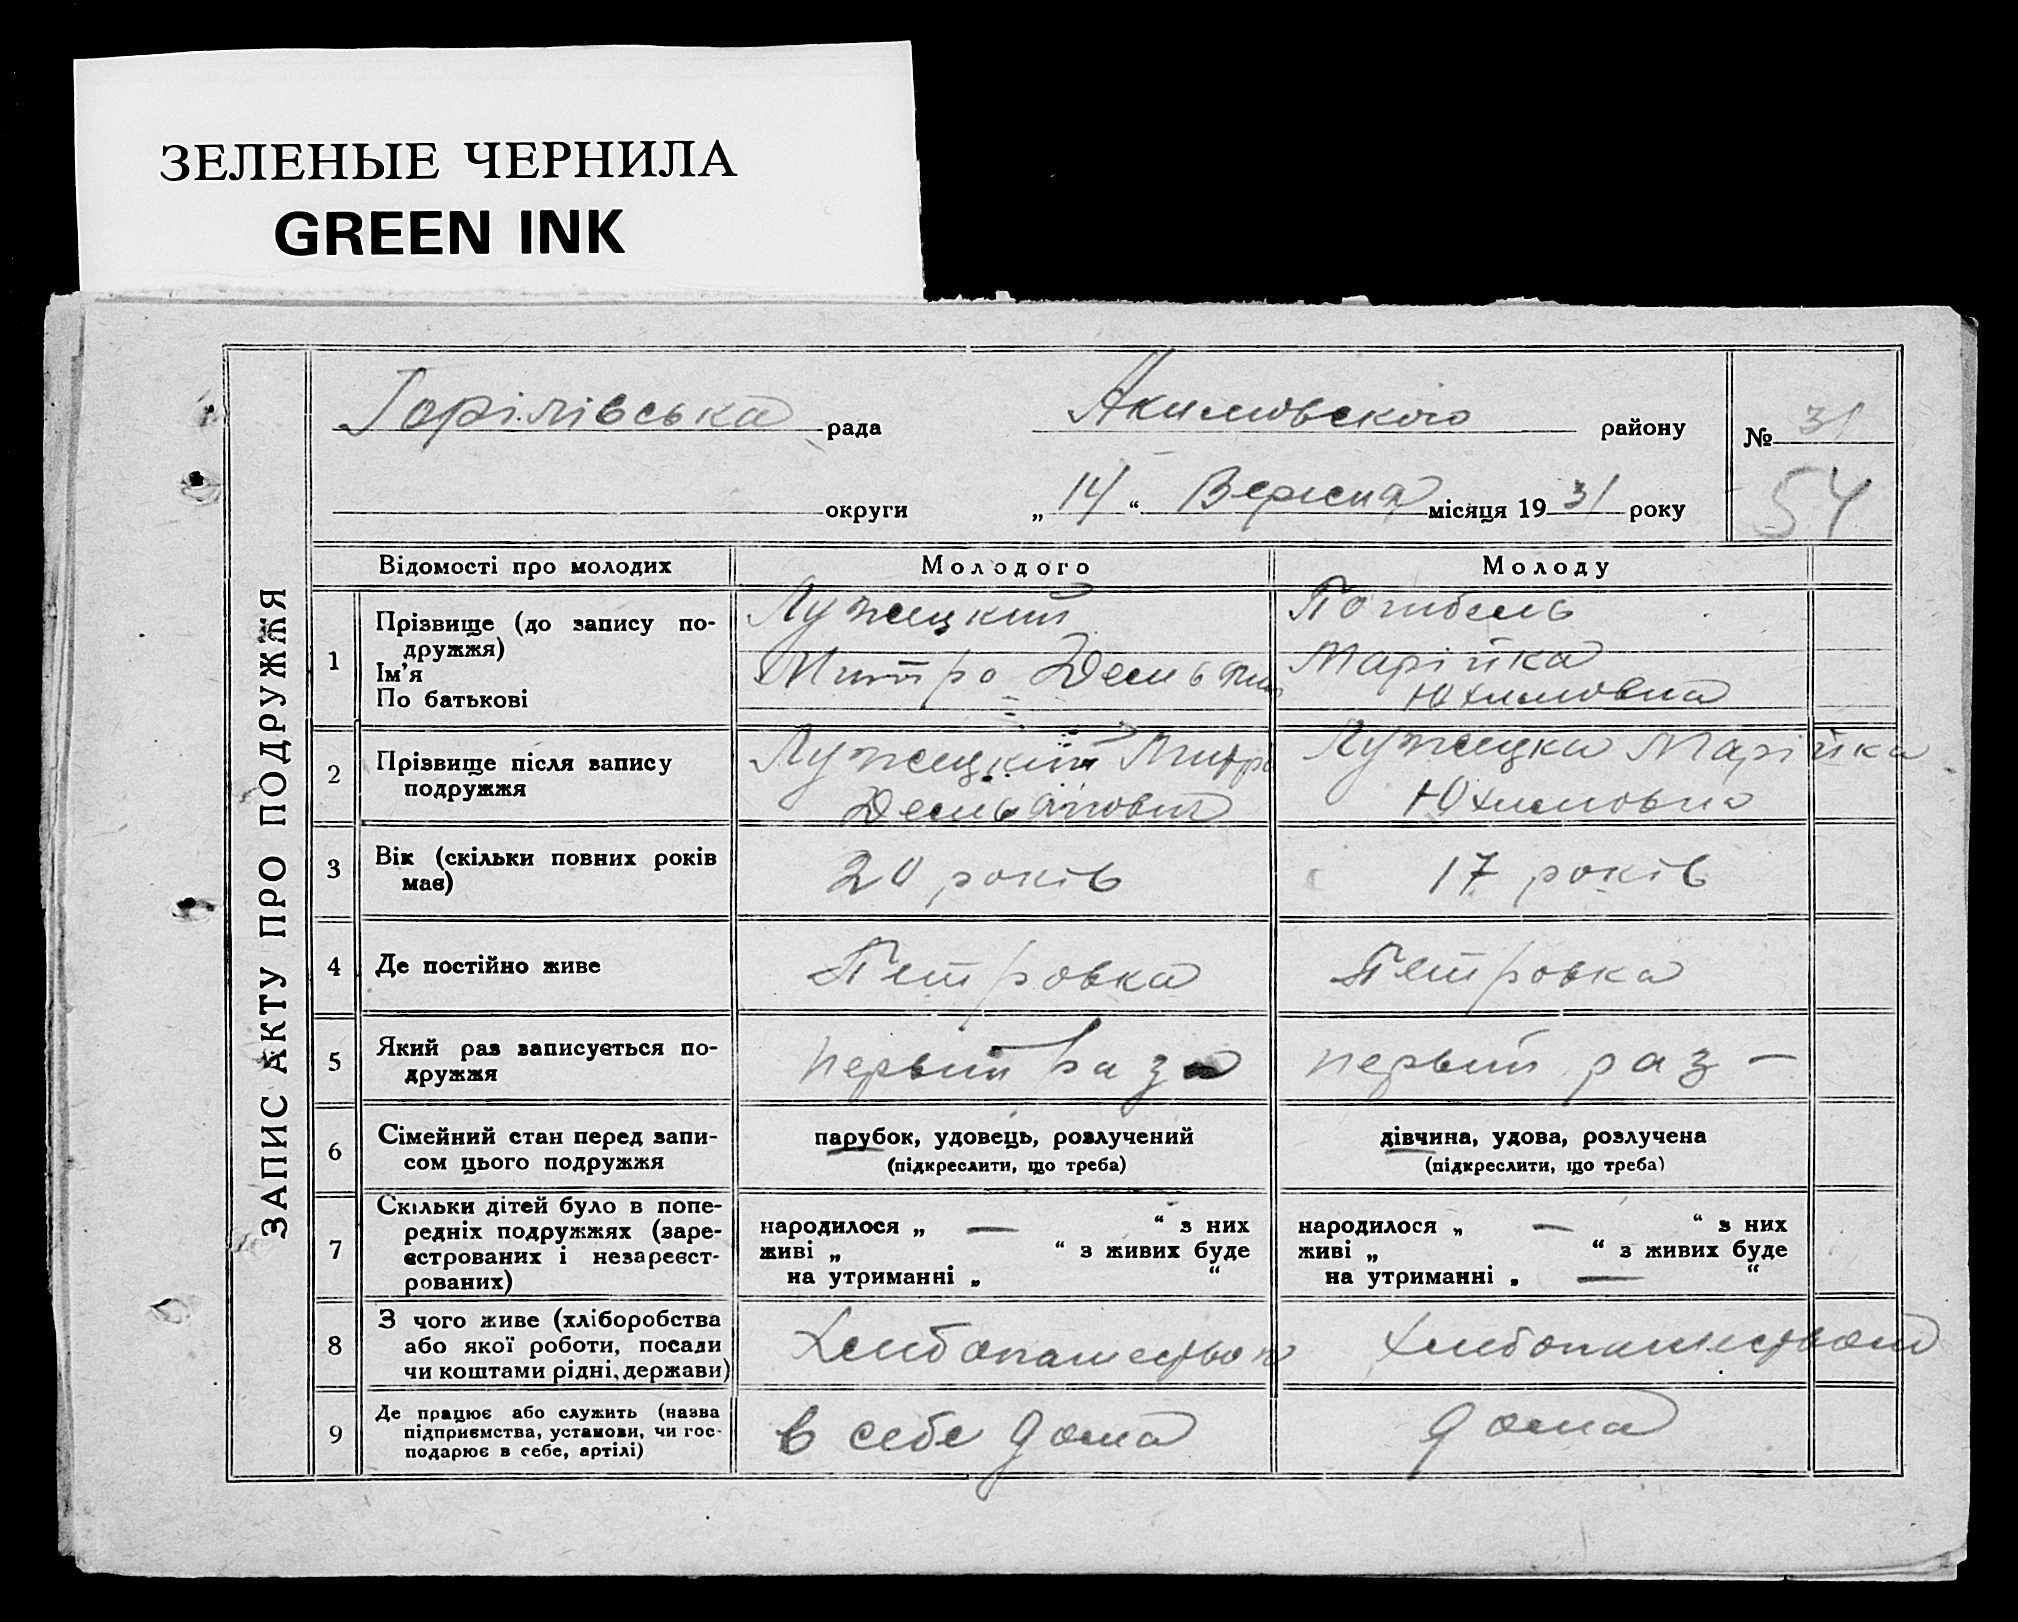 ЗЕЛЕНЫЕ ЧЕРНИЛА
GREEN INK
ЗАПИС АКТУ ПРО ПОДРУЖЖЯ
Горілівська рада Акимовского району № 31
округи „14“ Вересня місяця 1931 року 54
Відомості про молодих Молодого Молоду
1 Прізвище (до запису по-
дружжя)
Ім'я
По батькові
Лужецкий
Митро Демьян
Погибель
Марійка
Юхимовна
2 Прізвище після запису
подружжя
Лужецкий Митро
Демьянович
Лужецка Марійка
Юхимовна
3 Вік (скільки повних років
має)
20 років
17 років
4 Де постійно живе
Петровка
Петровка
5 Який раз записується по-
дружжя
первий раз
первий раз –
6 Сімейний стан перед запи-
сом цього подружжя
парубок, удовець, розлучений
(підкреслити, що треба)
дівчина, удова, розлучена
(підкреслити, що треба)
7 Скільки дітей було в попе-
редніх подружжях (заре-
єстрованих і незареєст-
рованих)
народилося „ — “ з них
живі „ “ з живих буде
на утриманні „ “
народилося „ — “ з них
живі „ “ з живих буде
на утриманні „ — “
8 З чого живе (хліборобства
або якої роботи, посади
чи коштами рідні, держави)
Хлибопашеством
Хлибопашеством
9 Де працює або служить (назва
підприємства, установи, чи гос-
подарює в себе, артілі)
в себе дома
дома